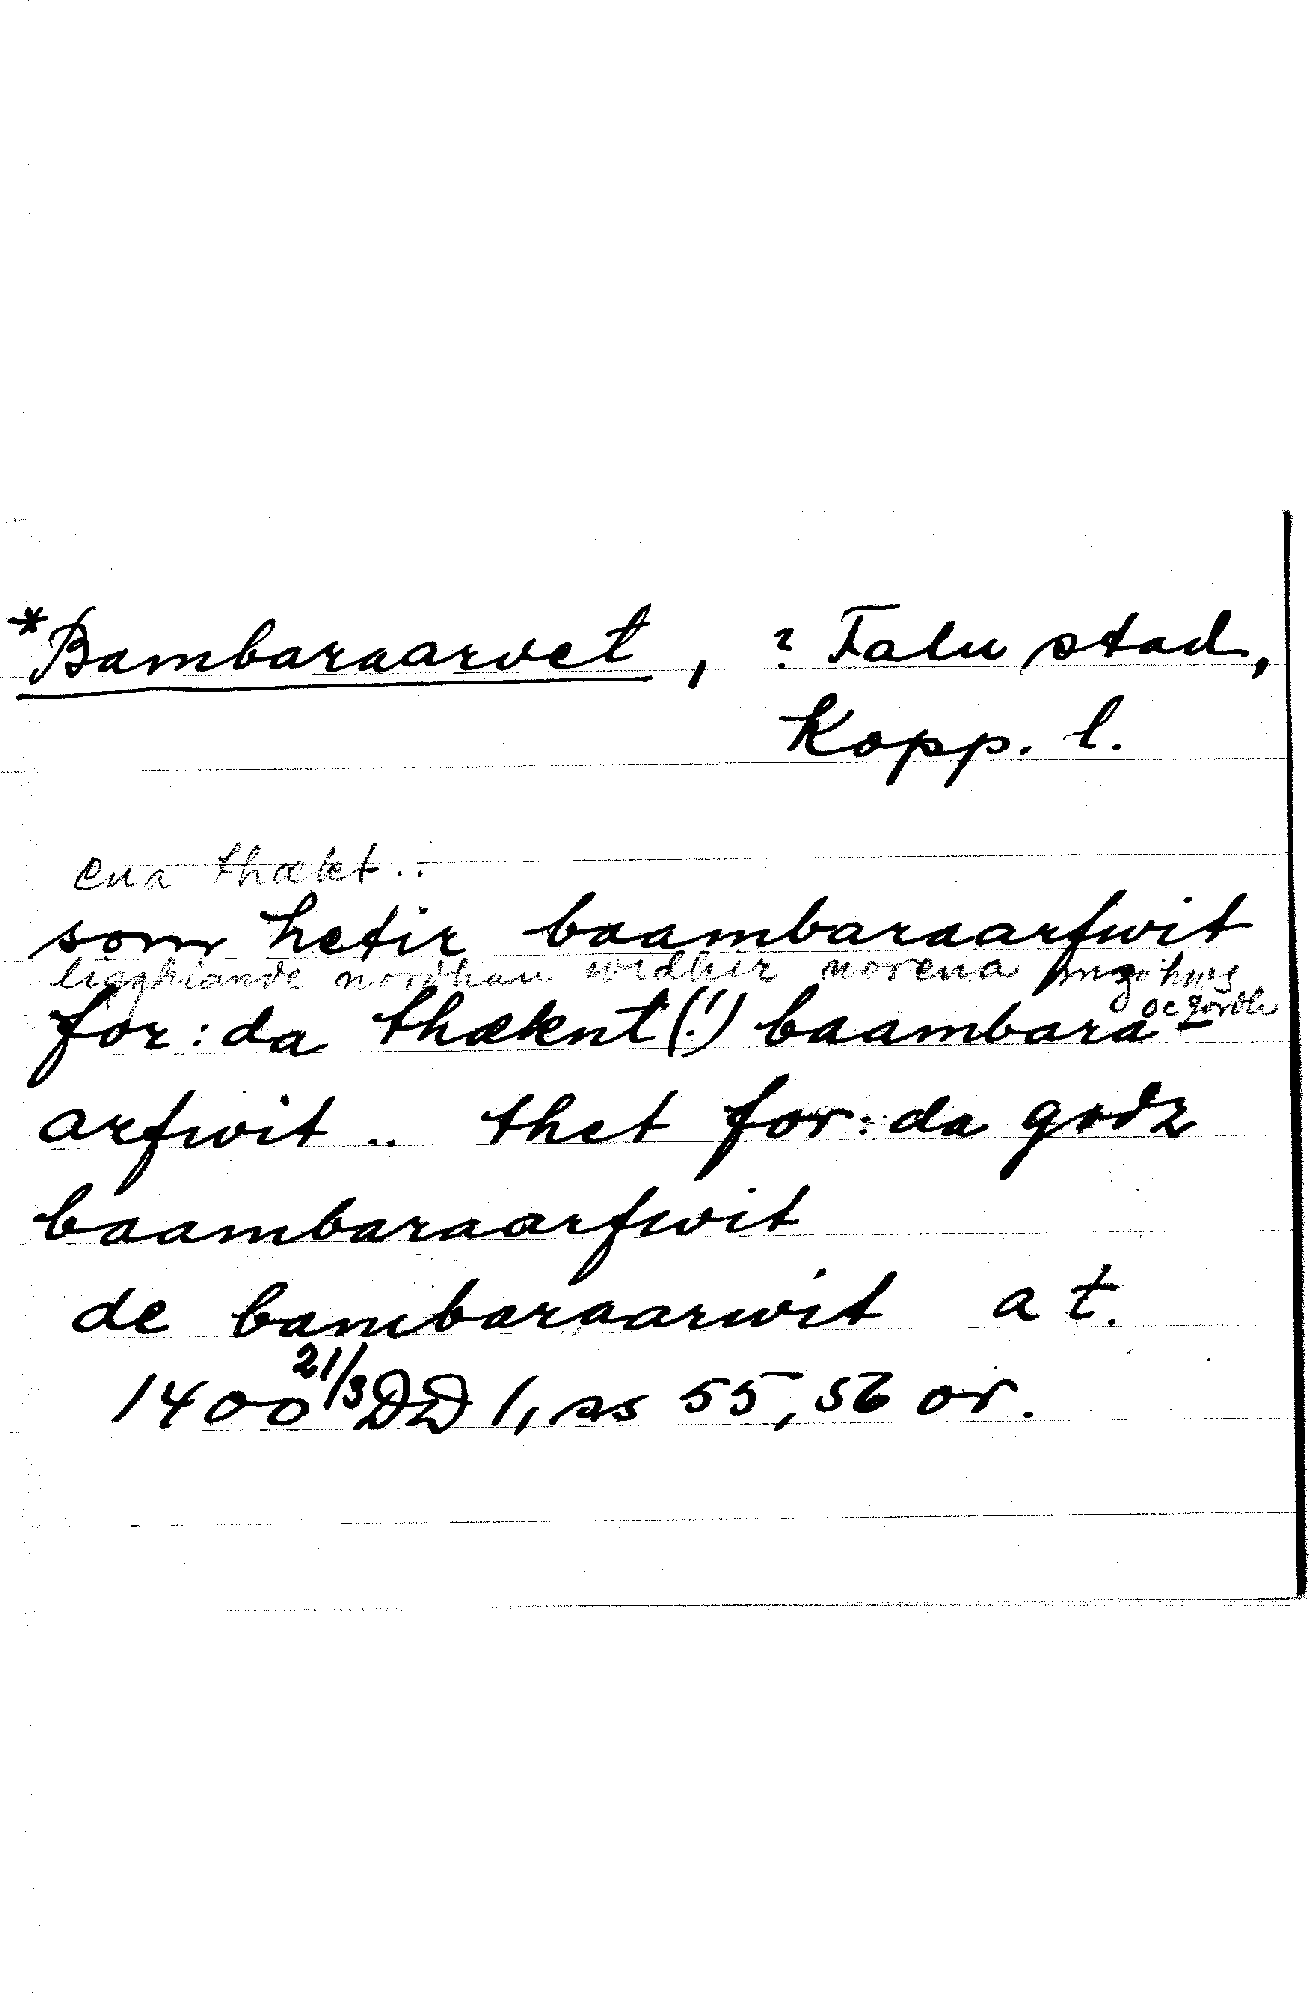 *Bambaraarvet, ? Falu stad,
Kopp. l.
ena thækt..
som hetir baambaraarfwit
ligghiande nordhan widhir norena
for:da thæknt(!) baambara-
arfwit .. thet for:da godz
baambaraarfwit
de bambaraarwit a t.
1400 21/3 DD 1, ss 55, 56 or.